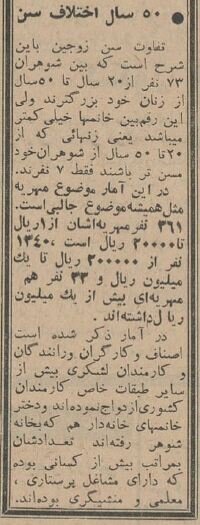 ● ۵۰ سال اختلاف سن
تفاوت سن زوجین باین
شرح است که بین شوهران
۷۳ نفر از ۲۰ سال تا ۵۰ سال
از زنان خود بزرگترند ولی
این رقم بین خانمها خیلی کمتر
میباشد یعنی زنهائی که از
۲۰ تا ۵۰ سال از شوهران خود
مسن تر باشند فقط ۷ نفرند.
در این آمار موضوع مهریه
مثل همیشه موضوع جالبی است.
۳۶۱ نفر مهریه‌اشان از ۱ ریال
تا ۲۰۰۰۰ ریال است ۱۳۴۰،
نفر از ۲۰۰۰۰۰ ریال تا یک
میلیون ریال و ۳۳ نفر هم
مهریه‌ای بیش از یک میلیون
ریال داشته‌اند.
در آمار ذکر شده است
اصناف و کارگران و رانندگان
و کارمندان لشگری بیش از
سایر طبقات خاص کارمندان
کشوری ازدواج نموده‌اند و دختر
خانمهای خانه‌دار هم که بخانه
شوهر رفته‌اند تعدادشان
بمراتب بیش از کسانی بوده
که دارای مشاغل پرستاری ،
معلمی و منشیگری بوده‌اند.